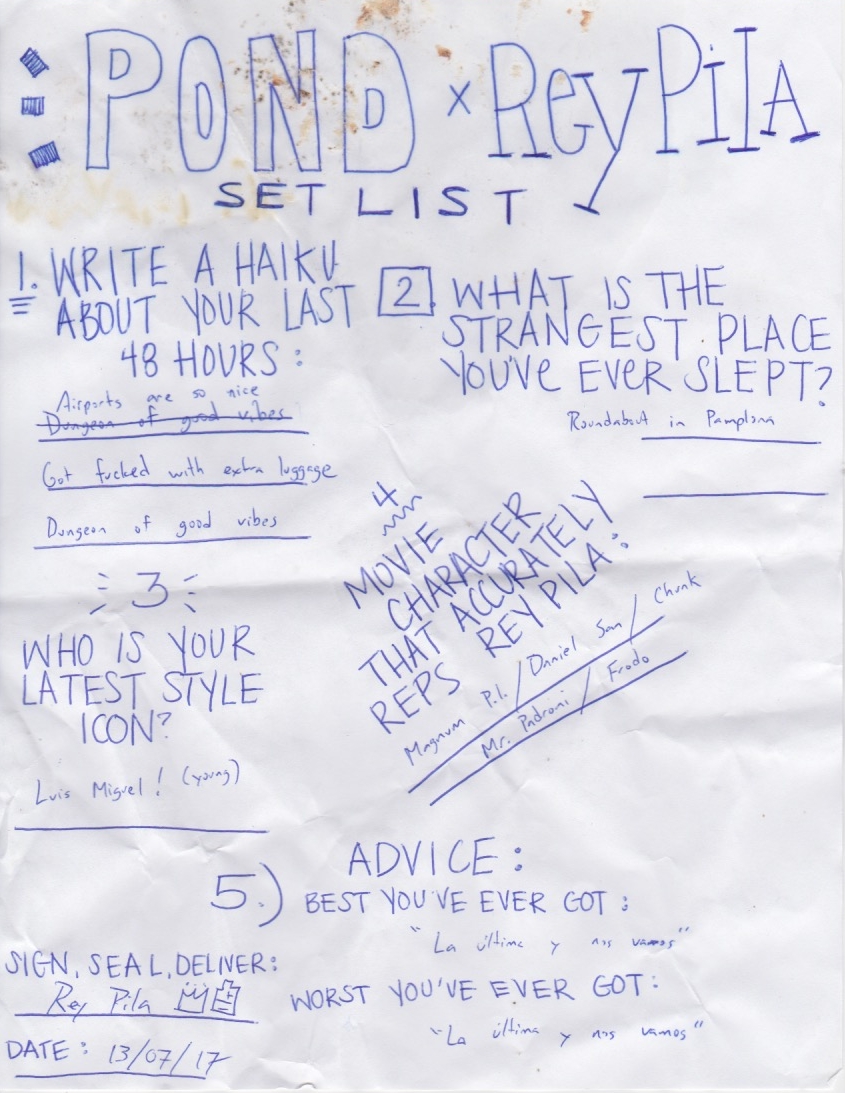 :POND x Rey PiLA
SET LIST
1. WRITE A HAIKU
ABOUT YOUR LAST
48 HOURS:
Airports are so nice
Dungeon of good vibes
Got fucked with extra luggage
Dungeon of good vibes
2. WHAT IS THE
STRANGEST PLACE
YOU'VE EVER SLEPT?
Roundabout in Pamplona
3
WHO IS YOUR
LATEST STYLE
ICON?
Luis Miguel! (young)
4
MOVIE
CHARACTER
THAT ACCURATELY
REPS REY PILA:
Magnum P.I. / Daniel San / Chunk
Mr. Padroni / Frodo
5.) ADVICE:
BEST YOU'VE EVER GOT:
"La última y nos vamos"
WORST YOU'VE EVER GOT:
"La última y nos vamos"
SIGN, SEAL, DELIVER:
Rey Pila
DATE: 13/07/17